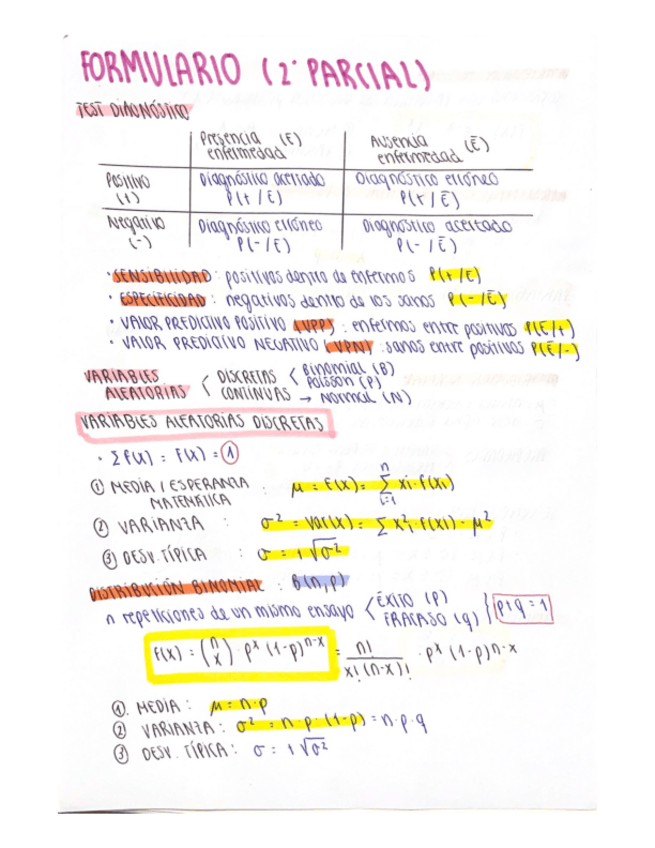 FORMULARIO (2º PARCIAL)
TEST DIAGNÓSTICO
Presencia enfermedad (E)
Ausencia enfermedad (Ē)
Positivo (+)
Diagnóstico acertado P(+/E)
Diagnóstico erróneo P(+/Ē)
Negativo (-)
Diagnóstico erróneo P(-/E)
Diagnóstico acertado P(-/Ē)
· SENSIBILIDAD : positivos dentro de enfermos P(+/E)
· ESPECIFICIDAD : negativos dentro de los sanos P(-/Ē)
· VALOR PREDICTIVO POSITIVO (VPP) : enfermos entre positivos P(E/+)
· VALOR PREDICTIVO NEGATIVO (VPN) : sanos entre positivos P(Ē/-)
VARIABLES ALEATORIAS < DISCRETAS < Binomial (B)
Poisson (P)
CONTINUAS → Normal (N)
VARIABLES ALEATORIAS DISCRETAS
· Σf(x) = F(x) = 1
① MEDIA / ESPERANZA MATEMÁTICA : μ = E(x) = Σ xi·f(xi) n i=1
② VARIANZA : σ² = Var(x) = Σ xi²·f(xi) - μ²
③ DESV. TÍPICA : σ = +√σ²
DISTRIBUCIÓN BINOMIAL : B(n,p)
n repeticiones de un mismo ensayo < ÉXITO (p)
FRACASO (q) } p+q = 1
f(x) = (n x) · p^x (1-p)^n-x = n! / x!(n-x)! · p^x (1-p)n-x
①. MEDIA : μ = n·p
② VARIANZA : σ² = n·p·(1-p) = n·p·q
③ DESV. TÍPICA : σ = +√σ²